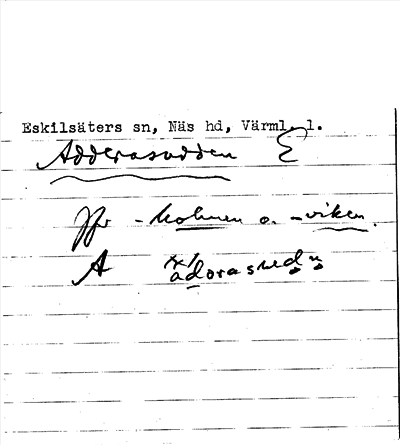 Eskilsäters sn, Näs hd, Värml. l.
Adderasudden E
Jfr -holmen o. -viken.
A adorasuedn